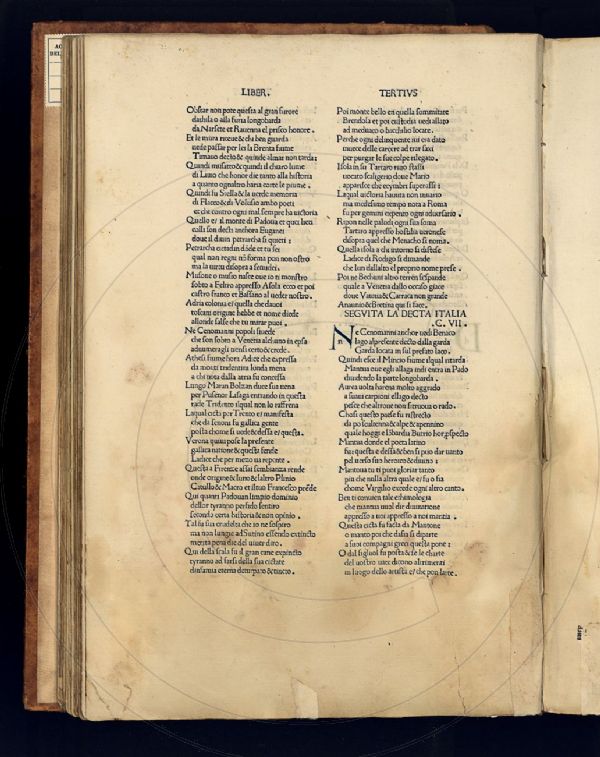 LIBER.
Obstar non pote questa al gran furore
dathila o alla furia longobarda
da Narsete et Rauenna el prisco honore.
Et le mura riceue & che ben guarda
uese passar per lei la Brenta fiume
Timauo decto & quinde almar non tarda:
Quindi musatto & quindi il chiaro lume
di Liuio che honor die tanto alla historia
a quanto ognaltro haria corte le piume.
Quindi fu Stella & la uerde memoria
di Flacco & di Volusio ambo poeti
et che contro ogni mal sempre ha uictoria
Quello e il monte di Padoua et qui lieti
calli son decti anchora Euganei
doue il diuin petrarcha si quieti:
Petrarcha cictadin dide et ta sei
qual non regni no forma pon non ostro
ma la uirtu disopra a semidei.
Musone o musio nasce oue io ti monstro
sobto a Feltro appresso Asola ecco et poi
castro franco et Bassano al ueder nostro.
Adria colonia e quella che dauoi
toscani origine hebbe et nome diede
allonde salse che tu mirar puoi.
Ne Cenomanni popoli siuede
che son sobto a Venetia alchuno in epsa
aduumeragli trensi certo & crede.
Athesi fiume hora Adice che expressa
da monti tridentini londa mena
a chi nota dalla arna fu concessa
Lungo Maran Bolzan duce sua uena
per Pusenor Lisaga entrando in questa
rade Tridento ilqual non lo raffrena
Laqual cicta per Trento e manifesta
che da senoni fu gallica gente
posta chome si uede & dessa e questa.
Verona quiui pose la presente
gallica natione & questa fende
Ladice che per mezo ua repente.
Questa a Firenze assai sembianza rende
onde origine & luno & laltro Plinio
Catullo & Macro et iltuo Francesco prede
Qui quanti Padouan limpio dominio
dellor tyranno perfido sentiro
secondo certa historia & non opinio.
Tal fu sua crudelta che io ne sospiro
ma non lungie ad Sutino essendo extincto
merita pena die del uiuer diro.
Qui della scala fu il gran cane expincto
tyranno ad farsi della sua cictade
dinfamia eterna deturpato & tincto.
TERTIVS
Poi monte bello en quella summitate
Brendola et poi custodia uedi allato
ad meduaco o bacchilio locate.
Perche ogni delinquente iui era dato
inuece delle carcere ad trar sassi
per purgar le sue colpe relegato.
Isola in su Tartaro nuio stassi
uocato scaligeri doue Mario
apparisce che ecymbri superassi:
Laqual uictoria hauuta non inuario
ma medesimo tempo nota a Roma
fu per gemini expenzo ogni aduersario.
Ripon nelle paludi ogni sua soma
Tartaro appresso hostilia ueronese
disopra quel che Menacho si noma.
Quella isola a chi intorno si distese
Ladice di Rodigo si dimande
che lun dallalto el proprio nome prese.
Poi ne Bechuni altro terren sespande
quale a Venetia dallo occaso giace
doue Vauoua & Carraca non grande
Anaunio & Bretina qui si face.
SEGVITA LA DECTA ITALIA
.C. VII.
Ne Cenomanni anchor uedi Benaco
n lago alpresente decto dalla garda
Garda locata in sul prefato laco.
Quindi esce il Mincio fiume ilqual ritarda
Mantua oue egli allaga indi entra in Pado
diuidendo la parte longobarda.
Aurea uolta harena molto aggrado
a suaui carpioni ellago decto
pesce che altroue non si truoua o rado.
Chosi questo paese fu ristrecto
da po cultenna & calpe & apennino
quale hoggi e lobardia Butrio hor pspecto
Mantua donde el poeta latino
fu: questa e dessa & ben si puo dar uanto
pel uerso suo heroico & diuino:
Mantoua tu ti puoi gloriar tanto
piu che nulla altra quale e fu o fia
chome Virgilio excede ogni altro canto.
Ben ti conuien tale ethimologia
che mantua uuol dir diuinatione
appresso a uoi appresso a noi mantia.
Questa cicta fu facta da Mantone
o manto poi che dasia si diparte
a suoi compagni greci questa pone:
O dal figliuol fu posta & se le charte
del uostro uate dicono altrimenti
in luogo dello artista e che pon larte.